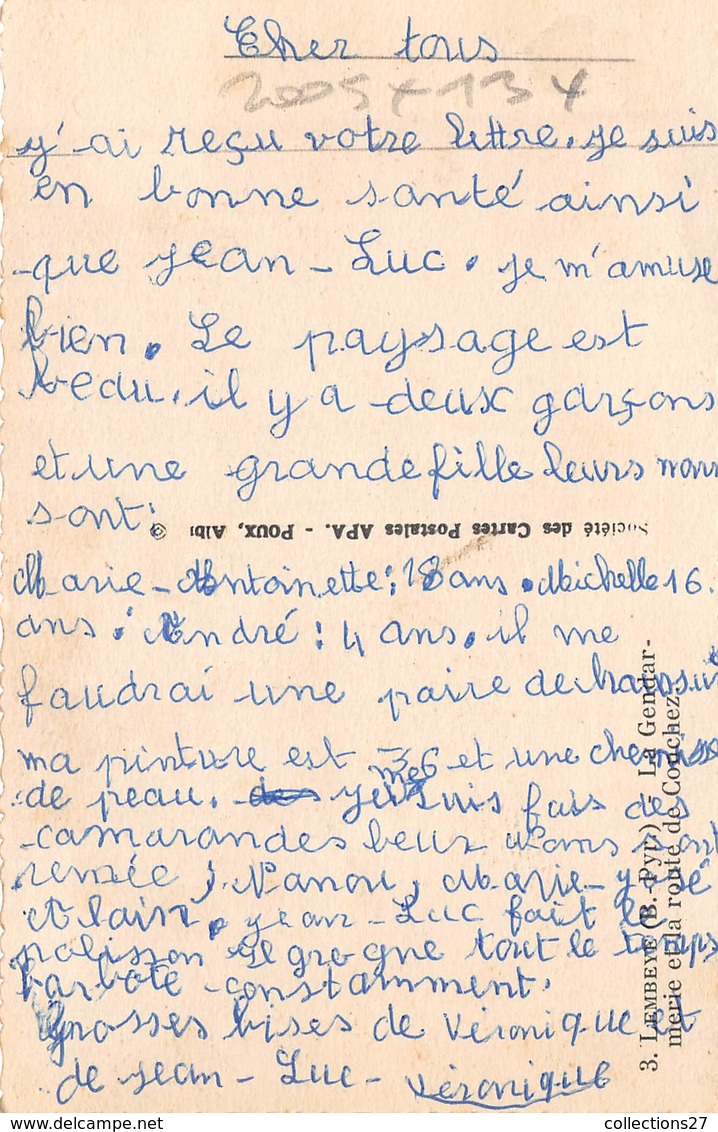 Cher tous
2005 + 134
j'ai reçu votre lettre. je suis
en bonne santé ainsi
que jean-Luc. je m'amuse
bien. Le paysage est
beau. il y a deux garçons
et une grande fille leurs noms
sont:
Société des Cartes Postales APA. - POUX, Albi
Marie-Antoinette: 18 ans. Michelle 16
ans. André: 4 ans. il me
faudrai une paire de
ma pinture est 36 et une chemise
de peau. je me suis fais des
camarandes leur noms sont
renée, Nanou, Marie-
Alain. jean-Luc fait le
polisson il grogne tout le temps
barbote constamment.
Grosses bises de Véronique et
de jean-Luc- Véronique
3. LEMBEYE (B.-Pyr.) - La Gendar-
merie et la route de Conchez.
collections27